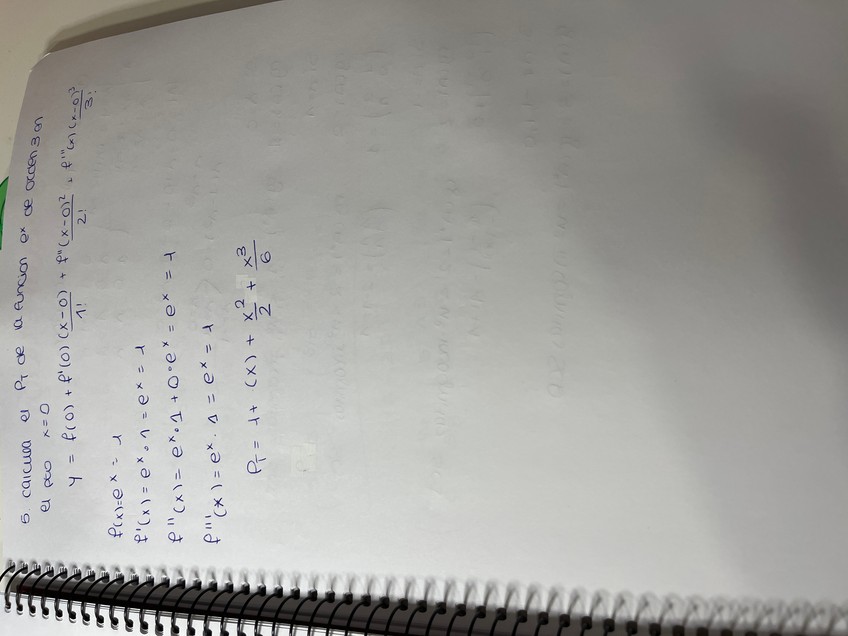 5. calcula el PT de la función e^x de orden 3 en
el pto x=0
y = f(0) + f'(0) (x-0)/1! + f''(x-0)²/2! + f'''(x)(x-0)³/3!
f(x)=e^x = 1
f'(x) = e^x · 1 = e^x = 1
f''(x) = e^x · 1 + 0 · e^x = e^x = 1
f'''(x) = e^x · 1 = e^x = 1
PT = 1 + (x) + x²/2 + x³/6